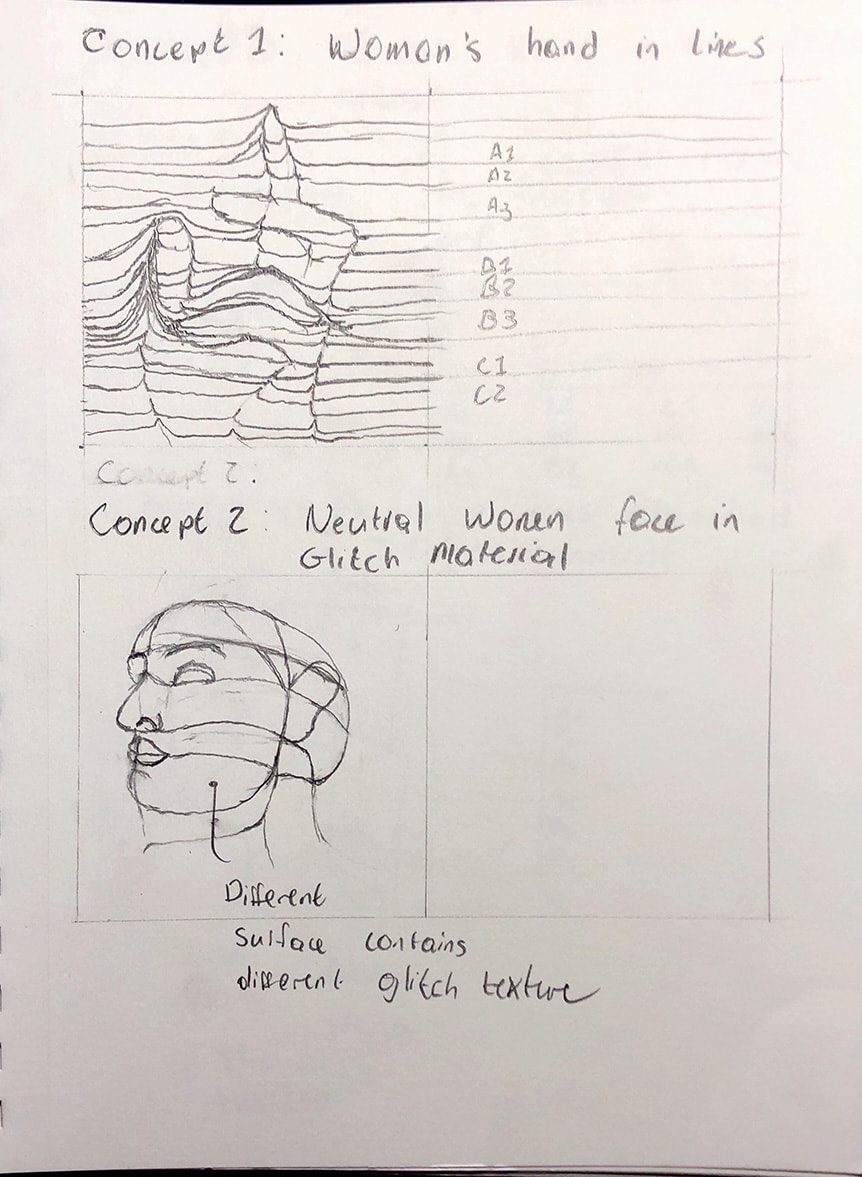 Concept 1: Woman's hand in lines
A1
A2
A3
B1
B2
B3
C1
C2
Concept 2:
Concept 2: Neutral Women face in
Glitch material
Different
surface contains
different glitch texture